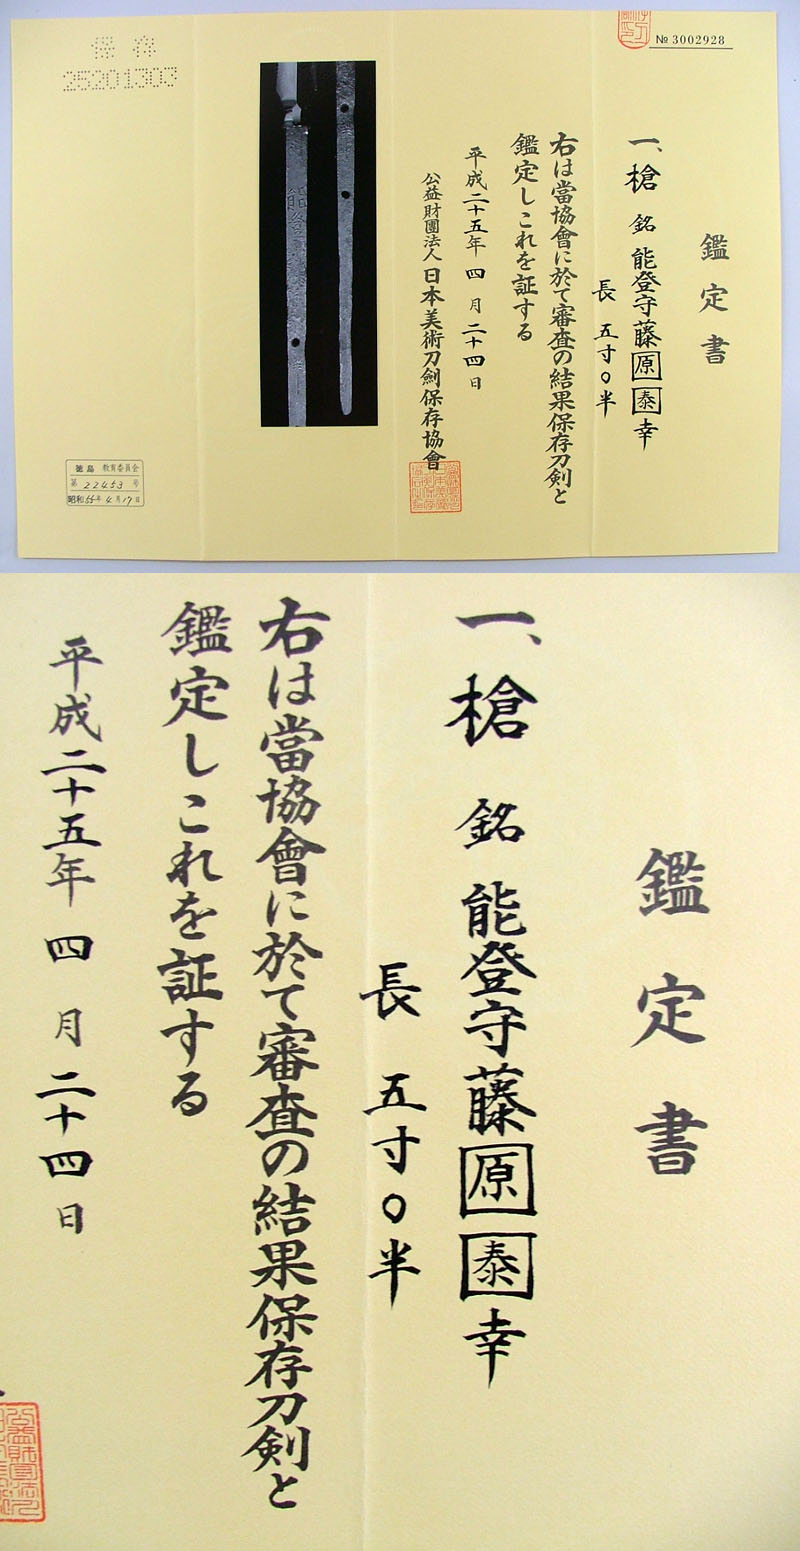 № 3002928
鑑定書
一、槍 銘 能登守藤原泰幸
長 五寸〇半
右は當協會に於て審査の結果保存刀剣と
鑑定しこれを証する
平成二十五年 四 月 二十四日
公益財團法人日本美術刀劍保存協會
保存
25201303
徳島 教育委員会
第 22453 号
昭和55年4月17日
能登
鑑定書
一、槍 銘 能登守藤原泰幸
長 五寸〇半
右は當協會に於て審査の結果保存刀剣と
鑑定しこれを証する
平成二十五年 四 月 二十四日